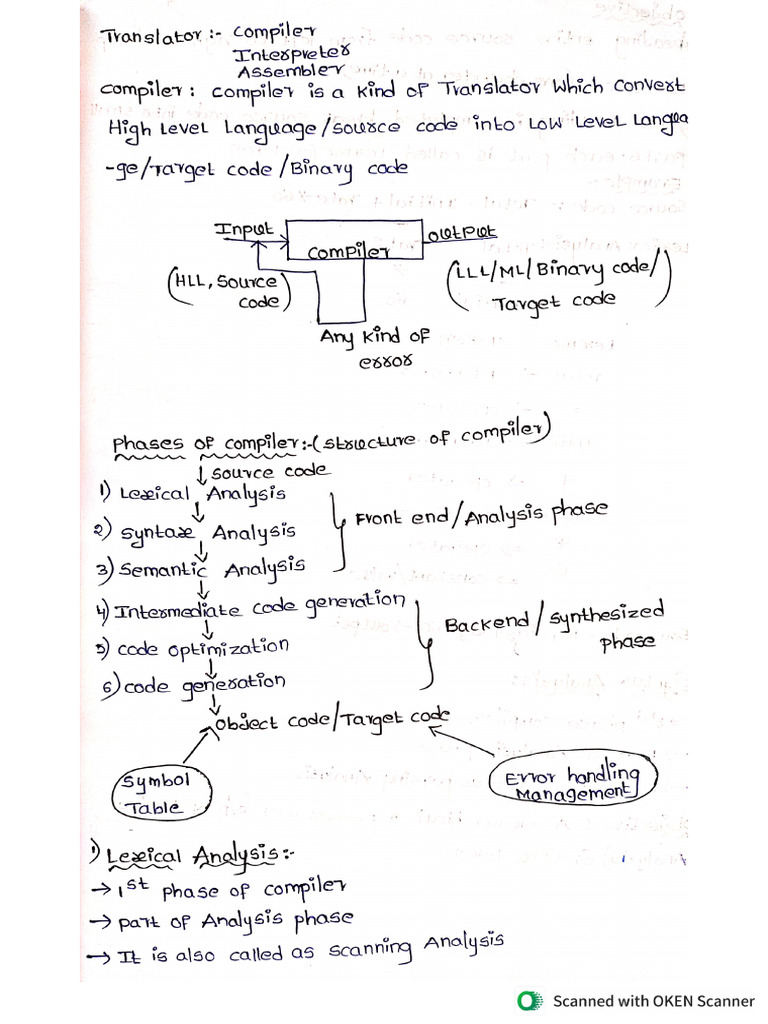 Translator :- Compiler
Interpreter
Assembler
Compiler : Compiler is a kind of Translator which convert
High Level Language/source code into Low Level Langua
-ge/Target code/Binary code
Input
Compiler
output
(HLL, Source code)
(LLL/ML/Binary code/ Target code)
Any kind of
error
Phases of compiler:-(structure of compiler)
source code
1) Lexical Analysis
2) Syntax Analysis
3) Semantic Analysis
Front end/Analysis phase
4) Intermediate code generation
5) code optimization
6) code generation
Backend/synthesized
phase
Object code/Target code
Symbol
Table
Error handling
Management
1) Lexical Analysis:-
→ 1st phase of compiler
→ part of Analysis phase
→ It is also called as scanning Analysis
Scanned with OKEN Scanner